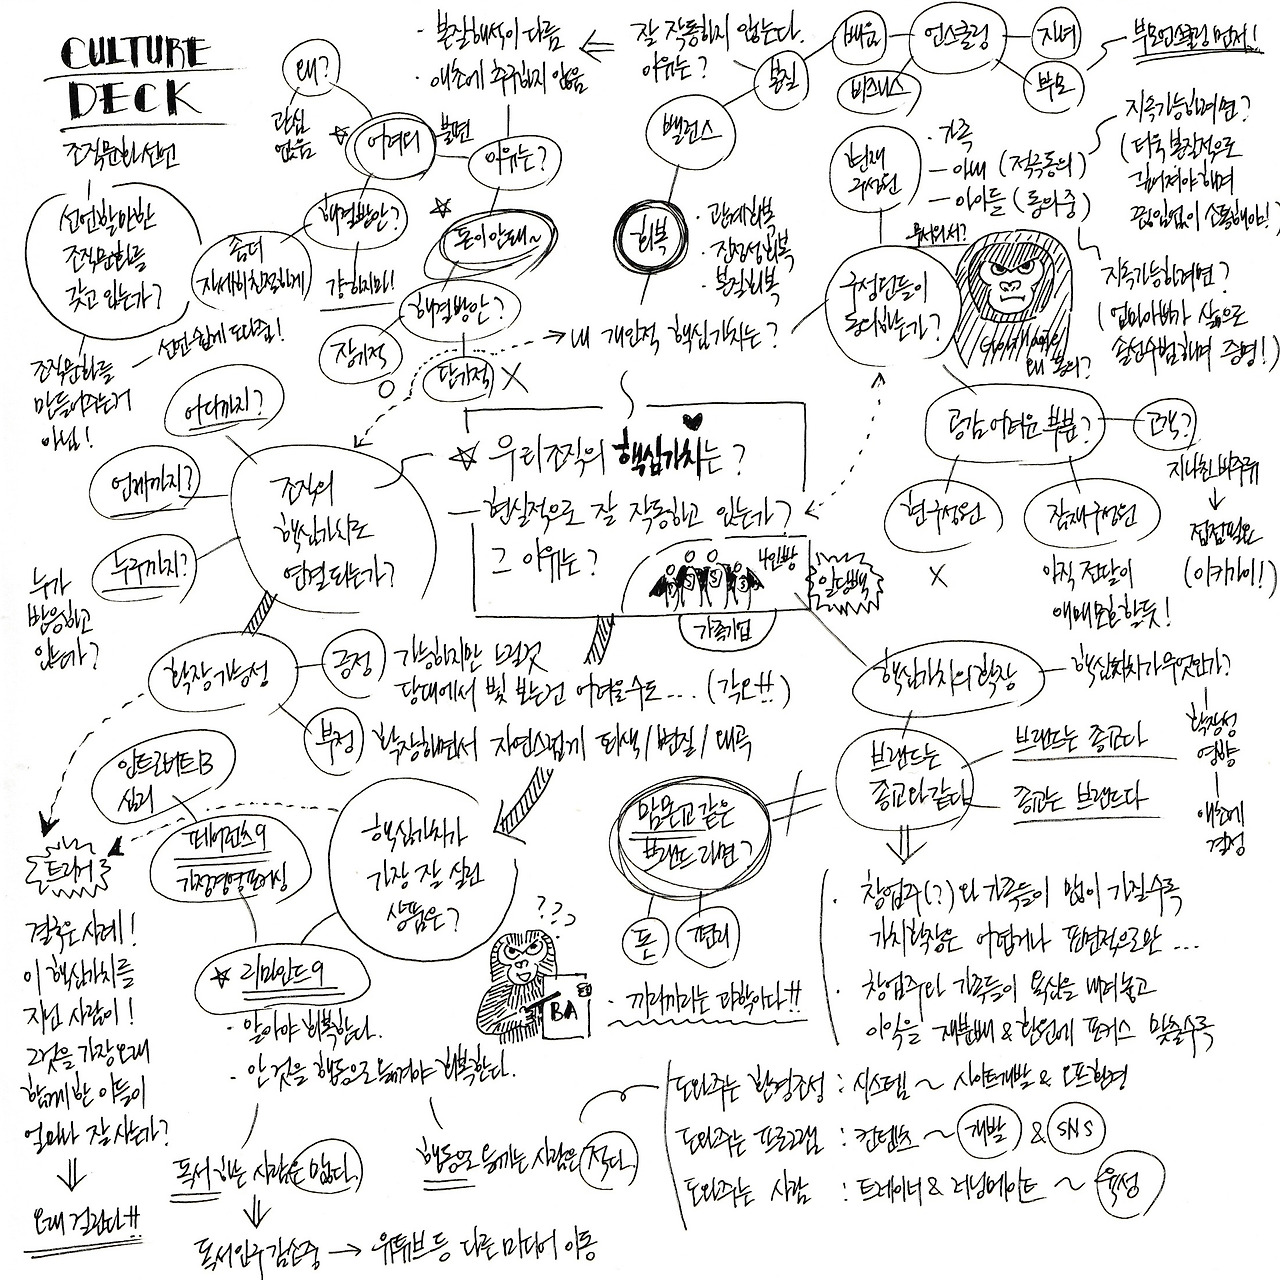 CULTURE
DECK
조직문화선언
선언할만한
조직문화를
갖고 있는가?
조직문화를
만들어주는거
아님!
선언 쉽게 따라감!
좀더
자세히 친절하게
왜?
관심
없음
어려워
불편
해결방안?
강하지마!
이유는?
돈이 안돼~
해결방안?
장기적
단기적
· 본질해석이 다름
· 애초에 추구하지 않음
잘 작동하지 않는다.
이유는?
본질
밸런스
회복
· 관계회복
· 진정성회복
· 본질회복
내 개인적 핵심가치는?
배움
비즈니스
언스쿨링
자녀
부모
부모언스쿨링 먼저!
현재
구성원
· 가족
- 아내 (적극동의)
- 아이들 (동의중)
지속가능하려면?
(더욱 본질적으로
깊어져야하며
끊임없이 소통해야함!)
지속가능하려면?
(엄마아빠가 삶으로
솔선수범하며 증명!)
무서워서?
왜 동의?
구성원들이
동의하는가?
공감 어려운 부분?
고객?
지나친 비주류
접점필요
(이키가이!)
현구성원
X
잠재구성원
아직 전달이
애매모호할듯!
우리조직의 핵심가치는?
현실적으로 잘 작동하고 있는가?
그 이유는?
4인방
일당백
가족기업
조직의
핵심가치로
연결되는가?
어디까지?
언제까지?
누구까지?
누가
반응하고
있는가?
확장가능성
긍정
가능하지만 느릴것
당대에서 빛 보는건 어려울수도... (각오!!)
부정
확장하면서 자연스럽게 퇴색/변질/왜곡
핵심가치의 확장
핵심가치가 무엇인가?
확장성
영향
애초에
결정
브랜드는
종교와 같다
브랜드는 종교다
종교는 브랜드다
맘몬교 같은
브랜드라면?
돈
편리
· 끼리끼리는 과학이다!!
· 창업주(?)와 가족들이 많이 가질수록
가치확장은 어렵거나 표면적으로만 ...
· 창업주와 가족들이 욕심을 내려놓고
이익을 재분배 & 환원에 포커스 맞출수록
인트로버트B
심리
페어런츠9
가정경영코칭
핵심가치가
가장 잘 실린
상품은?
리마인드9
· 알아야 회복한다.
· 안 것을 행동으로 옮겨야 회복한다.
???
BA
트리거
결국은 사례!
이 핵심가치를
지닌 사람이!
그것을 가장 오래
함께한 이들이
얼마나 잘 사는가?
오래 걸린다!!
독서하는 사람은 많다.
독서인구 감소중 → 유튜브 등 다른 미디어 이동
행동으로 옮기는 사람은 적다.
도와주는 환경조성 : 시스템 ~ 사이트개발 & 오프환경
도와주는 프로그램 : 컨텐츠 ~ 개발 & SNS
도와주는 사람 : 트레이너 & 러닝메이트 ~ 육성